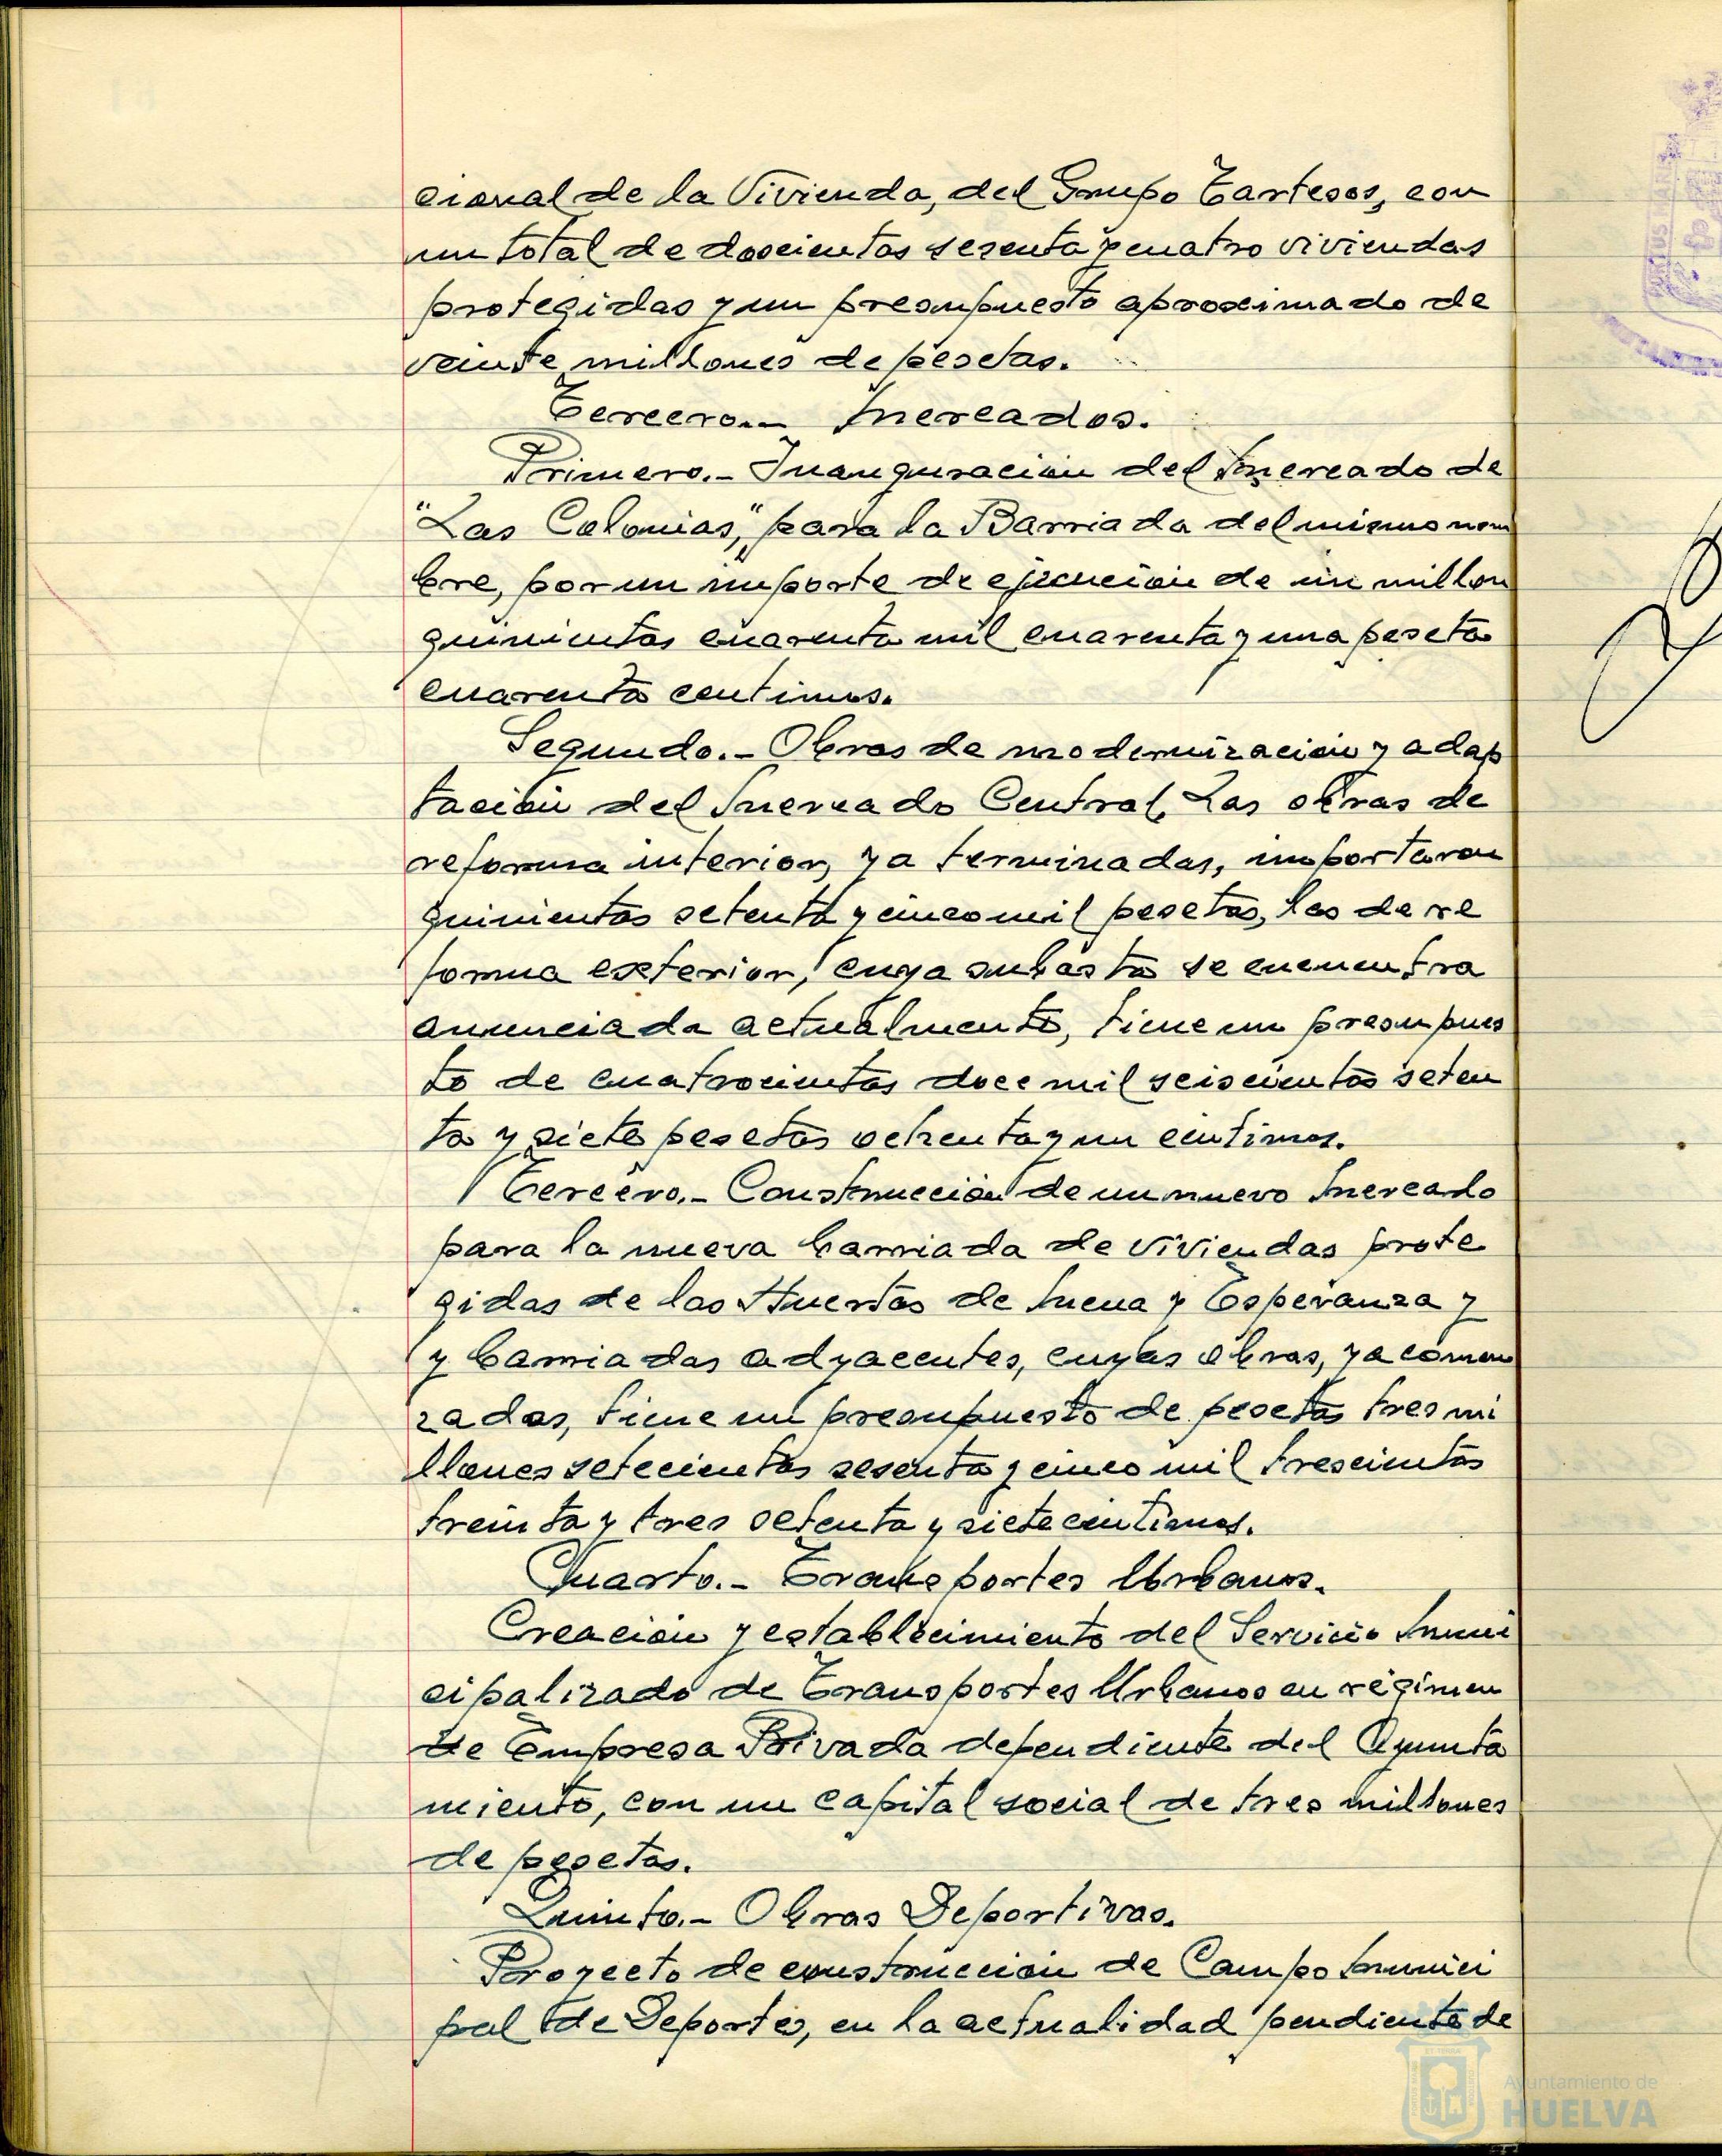 cional de la Vivienda, del Grupo Tartesos, con
un total de doscientas sesenta y cuatro viviendas
protegidas y un presupuesto aproximado de
veinte millones de pesetas.
Tercero.- Mercados.
Primero.- Inauguración del Mercado de
"Las Colonias," para la Barriada del mismo nom
bre, por un importe de ejecución de un millon
quinientas cuarenta mil cuarenta y una peseta
cuarenta centimos.
Segundo.- Obras de modernización y adap
tación del Mercado Central. Las obras de
reforma interior, ya terminadas, importaron
quinientas setenta y cinco mil pesetas, las de re
forma exterior, cuya subasta se encuentra
anunciada actualmente, tiene un presupues
to de cuatrocientas doce mil seiscientas seten
ta y siete pesetas ochenta y un centimos.
Tercero.- Construcción de un nuevo Mercado
para la nueva barriada de viviendas prote
gidas de las Huertas de Mena y Esperanza y
y barriadas adyacentes, cuyas obras, ya comen
zadas, tiene un presupuesto de pesetas tres mi
llones setecientas sesenta y cinco mil trescientas
treinta y tres setenta y siete centimos.
Cuarto.- Transportes Urbanos.
Creación y establecimiento del Servicio Muni
cipalizado de Transportes Urbanos en régimen
de Empresa Privada dependiente del Ayunta
miento, con un capital social de tres millones
de pesetas.
Quinto.- Obras Deportivas.
Proyecto de construcción de Campo Munici
pal de Deportes, en la actualidad pendiente de
Ayuntamiento de
HUELVA